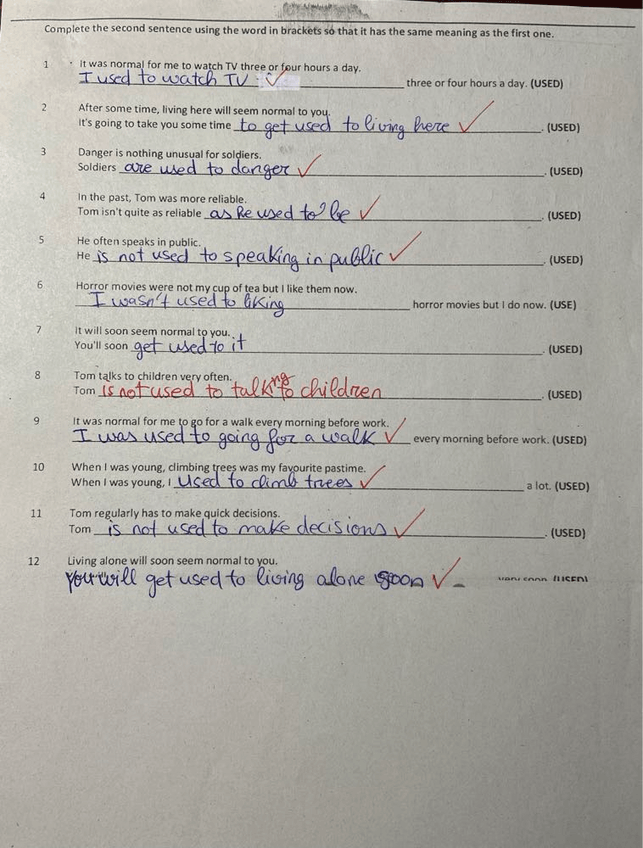 Complete the second sentence using the word in brackets so that it has the same meaning as the first one.
1 It was normal for me to watch TV three or four hours a day.
I used to watch TV three or four hours a day. (USED)
2 After some time, living here will seem normal to you.
It's going to take you some time to get used to living here. (USED)
3 Danger is nothing unusual for soldiers.
Soldiers are used to danger. (USED)
4 In the past, Tom was more reliable.
Tom isn't quite as reliable as he used to be. (USED)
5 He often speaks in public.
He is not used to speaking in public. (USED)
6 Horror movies were not my cup of tea but I like them now.
I wasn't used to liking horror movies but I do now. (USE)
7 It will soon seem normal to you.
You'll soon get used to it. (USED)
8 Tom talks to children very often.
Tom is not used to talking to children. (USED)
9 It was normal for me to go for a walk every morning before work.
I was used to going for a walk every morning before work. (USED)
10 When I was young, climbing trees was my favourite pastime.
When I was young, I used to climb trees a lot. (USED)
11 Tom regularly has to make quick decisions.
Tom is not used to make decisions. (USED)
12 Living alone will soon seem normal to you.
You will get used to living alone soon